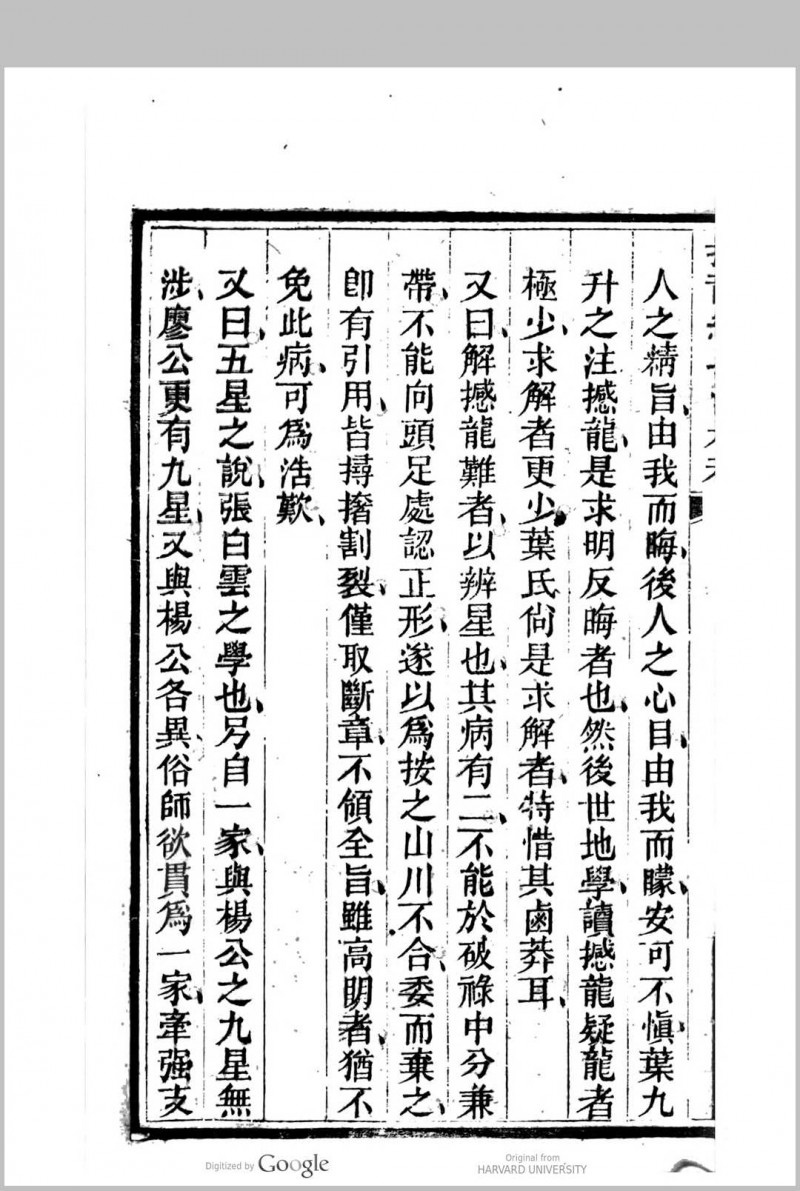 人之精旨、由我而晦、後人之心目、由我而矇、安可不愼、葉九
升之注撼龍、是求明反晦者也、然後世地學、讀撼龍疑龍者
極少、求解者更少、葉氏尙是求解者、特惜其鹵莽耳、
又曰、解撼龍難者、以辨星也、其病有二、不能於破祿中分兼
帶、不能向頭足處認正形、遂以爲按之山川不合、委而棄之、
卽有引用、皆撏撦割裂、僅取斷章、不傾全旨、雖高明者、猶不
免此病、可爲浩歎、
又曰、五星之說、張白雲之學也、另自一家、與楊公之九星無
涉、廖公更有九星、又與楊公各異俗師欲貫爲一家、牽强支
Digitized by Google
Original from
HARVARD UNIVERSITY